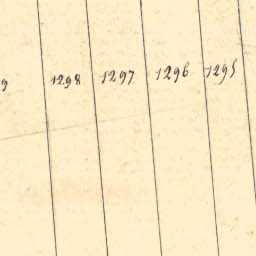 9 1298 1297 1296 1295